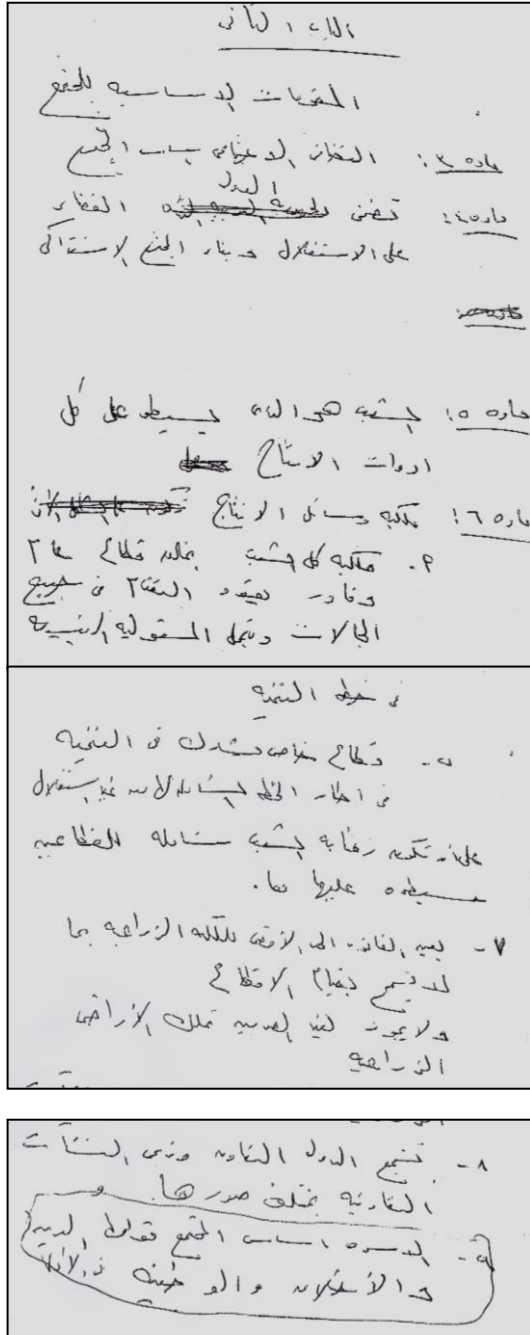 الباب الثانى
المقومات الاساسيه للمجتمع
ماده ٣: التضامن الاجتماعى اساس المجتمع
الدوله
ماده ٤: تضمن القضاء
على الاستغلال وبناء المجتمع الاشتراكى
ماده ٥: الشعب هو الذى يسيطر على كل
ادوات الانتاج
ماده ٦: ملكيه وسائل الانتاج
٩. ملكيه كل الشعب بخلق قطاع عام
وقادر يقود التقدم فى جميع
المجالات ويتحمل المسئوليه الرئيسيه
فى خطه التنميه
ب- قطاع خاص يشارك فى التنميه
فى اطار الخطه الشامله لها من غير استغلال
على ان تكون رقابه الشعب شامله للقطاعين
مسيطره عليها معا.
٧- يعين القانون الحد الأقصى للملكيه الزراعيه بما
لا يسمح بقيام الاقطاع
ولا يجوز لغير المصريين تملك الأراضى
الزراعيه
٨- تشجع الدوله التعاون وترعى المنشآت
التعاونيه بمختلف صورها.
٩- الاسره اساس المجتمع قوامها الدين
والأخلاق والوطنيه